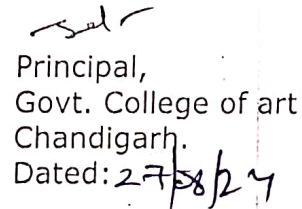 Principal,
Govt. College of art
Chandigarh.
Dated: 27/08/24